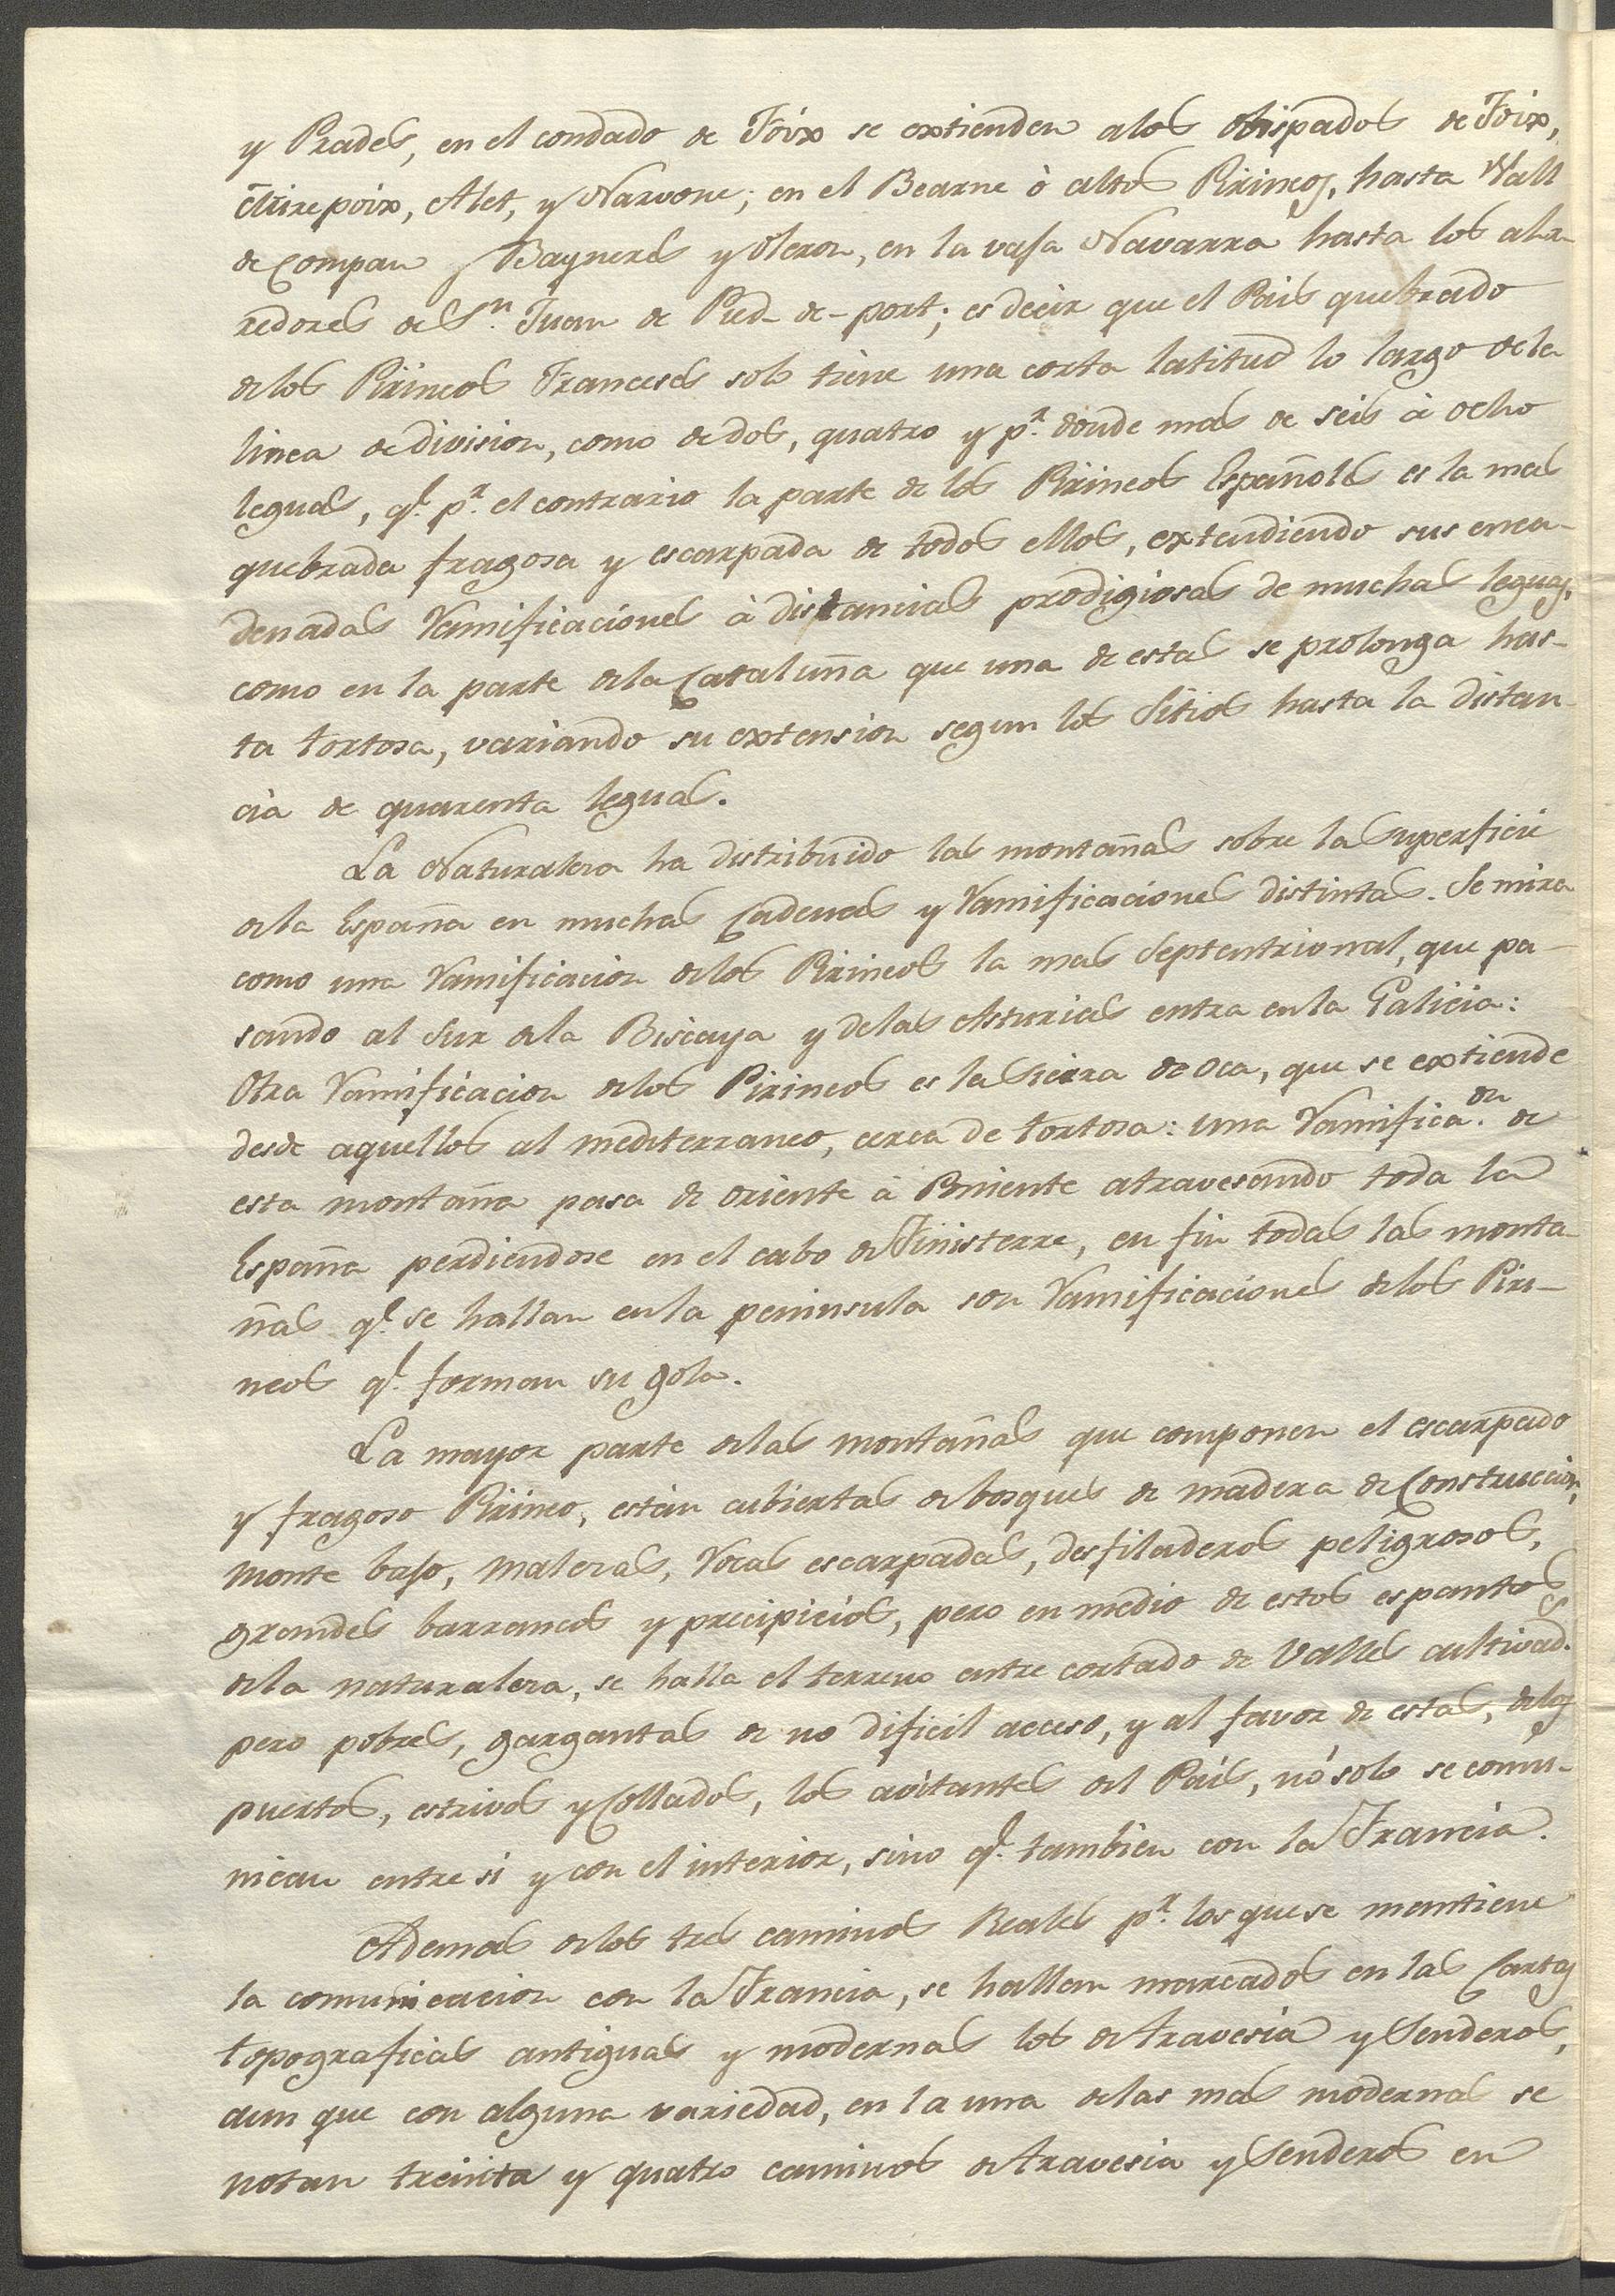 y Prades, en el condado de Foix se extienden a los obispados de Foix,
Mirepoix, Alet, y Narvone; en el Bearne ò altos Pirineos, hasta Vall
de Compan y Bayneres y Oleron, en la vasa Navarra hasta los alre-
redores de Sn. Juan de Pied-de-port; es decir que el Pais quebrado
de los Pirineos Franceses solo tiene una corta latitud lo largo de la
linea de division, como de dos, quatro y pr. donde mas de seis à ocho
leguas, ql. pr. el contrario la parte de los Pirineos Españoles es la mas
quebrada fragosa y escarpada de todos ellos, extendiendo sus enca-
denadas Ramificaciones à distancias prodigiosas de muchas leguas,
como en la parte de la Cataluña que una de estas se prolonga has-
ta tortosa, variando su extension segun los Sitios hasta la distan-
cia de quarenta leguas.
La Naturaleza ha distribuido las montañas sobre la superficie
de la España en muchas Cadenas y Ramificaciones distintas. Se mira
como una Ramificacion de los Pirineos la mas Septentrional, que pa-
sando al Sur de la Biscaya y de las Asturias entra en la Galicia:
Otra Ramificacion de los Pirineos es la Sierra de Oca, que se extiende
desde aquellos al mediterraneo, cerca de tortosa: una Ramifica.on de
esta montaña pasa de oriente à Poniente atravesando toda la
España perdiendose en el cabo de Finisterre, en fin todas las monta-
ñas ql. se hallan en la peninsula son Ramificaciones de los Piri-
neos ql. forman su gola.
La mayor parte de las montañas que componen el escarpado
y fragoso Pirineo, están cubiertas de bosques de madera de Construccion,
monte baso, malezas, Rocas escarpadas, desfiladeros peligrosos,
grandes barrancos y precipicios, pero en medio de estos espantos
de la naturaleza, se halla el terreno entre cortado de Valles cultivad.
pero pobres, gargantas de no dificil acceso, y al favor de estas, de los
puertos, estrivos y Collados, los avitantes del Pais, nó solo se comu-
nican entre si y con el interior, sino ql. tambien con la Francia.
Ademas de los tres caminos Reales pr. los que se mantiene
la comunicacion con la Francia, se hallan marcados en las Cartas
topograficas antiguas y modernas los de travesia y Senderos,
aun que con alguna variedad, en la una de las mas modernas se
notan treinta y quatro caminos de travesia y Senderos en